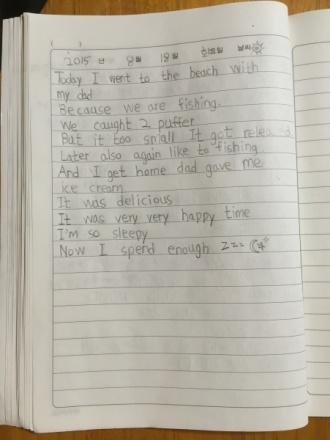 2015 년 8월 18일 화요일 날씨
Today I went to the beach with
my dad
Because we are fishing.
We caught 2 puffer
But it too small It got released
Later also again like to fishing
And I get home dad gave me
ice cream
It was delicious
It was very very happy time
I'm so sleepy
Now I spend enough zzz